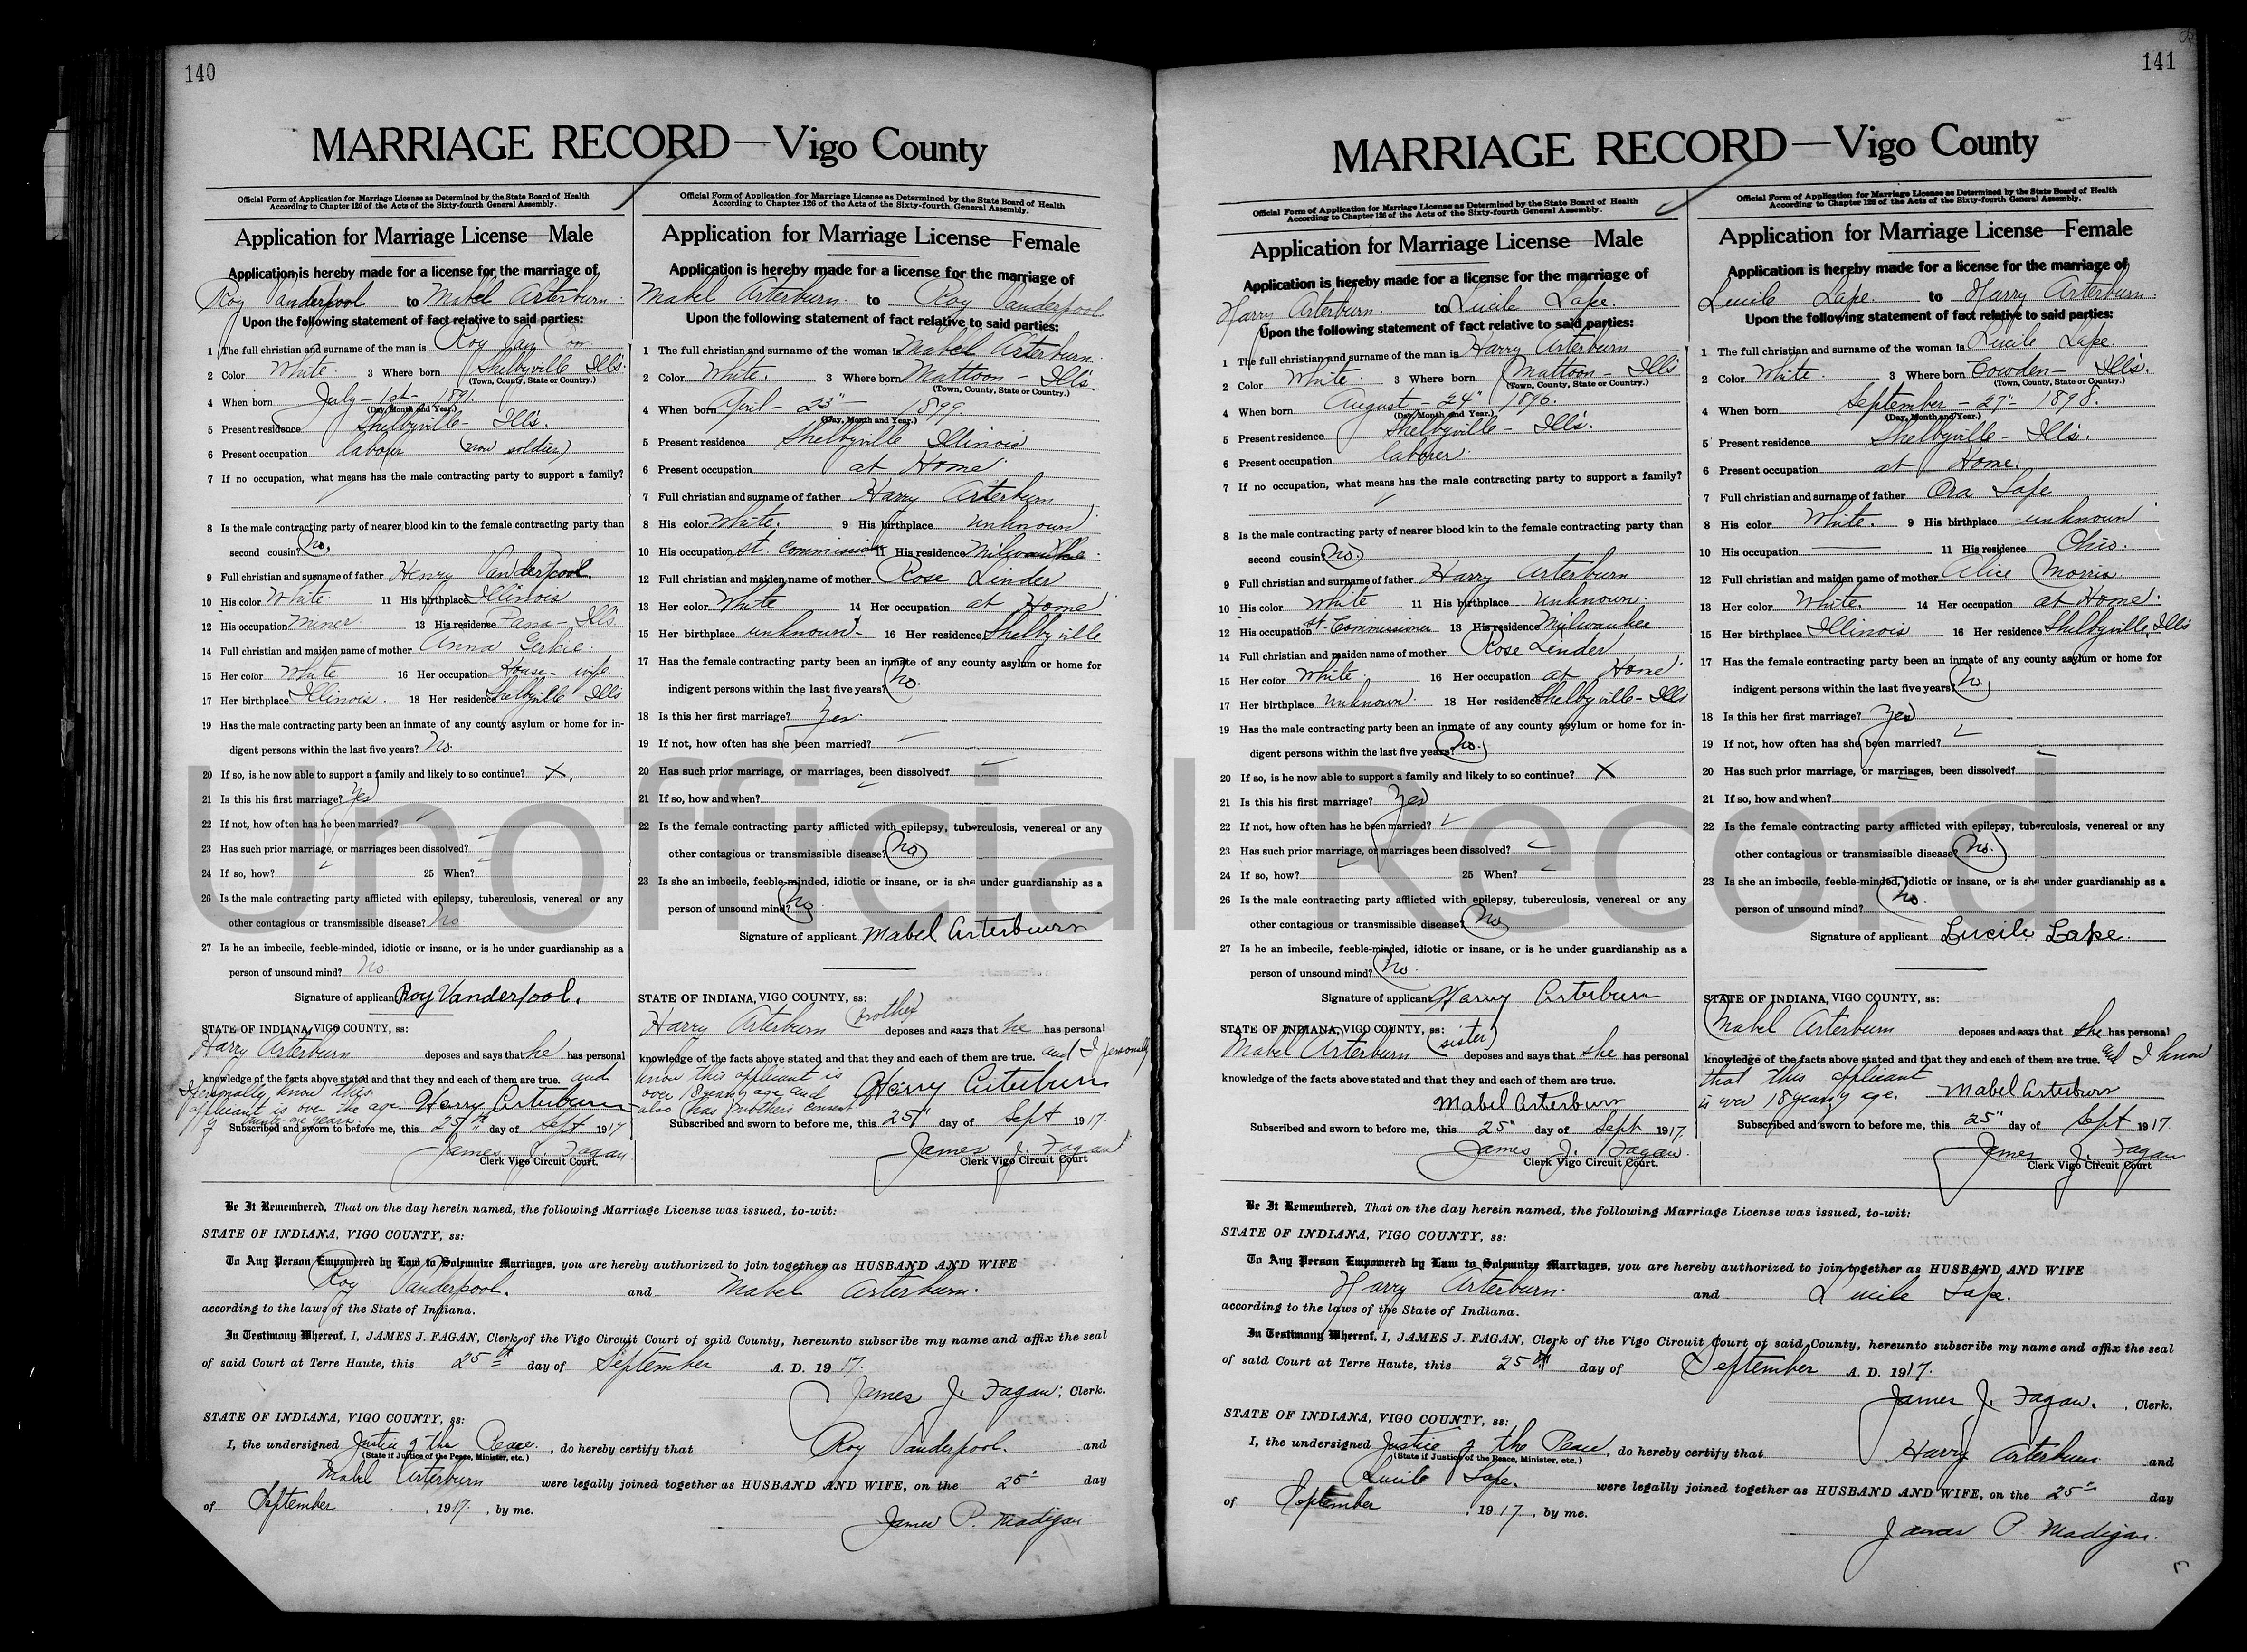 140
MARRIAGE RECORD—Vigo County
Official Form of Application for Marriage License as Determined by the State Board of Health
According to Chapter 126 of the Acts of the Sixty-fourth General Assembly.
Application for Marriage License—Male
Application is hereby made for a license for the marriage of
Roy Vanderpool to Mabel Arterburn.
Upon the following statement of fact relative to said parties:
1 The full christian and surname of the man is Roy Van
2 Color White. 3 Where born Shelbyville Ills.
(Town, County, State or Country.)
4 When born July - 1st - 1891.
(Day, Month and Year.)
5 Present residence Shelbyville - Ills.
6 Present occupation laborer (now soldier)
7 If no occupation, what means has the male contracting party to support a family?
8 Is the male contracting party of nearer blood kin to the female contracting party than
second cousin? no.
9 Full christian and surname of father Henry Vanderpool.
10 His color White. 11 His birthplace Illinois
12 His occupation miner 13 His residence Pana - Ills.
14 Full christian and maiden name of mother Anna Gerkie.
15 Her color White 16 Her occupation House - wife
17 Her birthplace Illinois. 18 Her residence Shelbyville Ills
19 Has the male contracting party been an inmate of any county asylum or home for in-
digent persons within the last five years? No
20 If so, is he now able to support a family and likely to so continue? X.
21 Is this his first marriage? Yes
22 If not, how often has he been married?
23 Has such prior marriage, or marriages been dissolved?
24 If so, how? 25 When?
26 Is the male contracting party afflicted with epilepsy, tuberculosis, venereal or any
other contagious or transmissible disease? No
27 Is he an imbecile, feeble-minded, idiotic or insane, or is he under guardianship as a
person of unsound mind? No.
Signature of applicant Roy Vanderpool.
STATE OF INDIANA, VIGO COUNTY, ss:
Harry Arterburn deposes and says that he has personal
knowledge of the facts above stated and that they and each of them are true. and
I personally know this
applicant is over the age Harry Arterburn
of twenty-one years.
Subscribed and sworn to before me, this 25th day of Sept 1917
James J. Fagan
Clerk Vigo Circuit Court.
Official Form of Application for Marriage License as Determined by the State Board of Health
According to Chapter 126 of the Acts of the Sixty-fourth General Assembly.
Application for Marriage License—Female
Application is hereby made for a license for the marriage of
Mabel Arterburn. to Roy Vanderpool
Upon the following statement of fact relative to said parties:
1 The full christian and surname of the woman is Mabel Arterburn.
2 Color White. 3 Where born Mattoon - Ills.
(Town, County, State or Country.)
4 When born April - 23" - 1899
(Day, Month and Year.)
5 Present residence Shelbyville Illinois
6 Present occupation at Home.
7 Full christian and surname of father Harry Arterburn
8 His color White. 9 His birthplace unknown
10 His occupation st. Commissioner 11 His residence Milwaukee.
12 Full christian and maiden name of mother Rose Linder
13 Her color White 14 Her occupation at Home
15 Her birthplace unknown - 16 Her residence Shelbyville
17 Has the female contracting party been an inmate of any county asylum or home for
indigent persons within the last five years? no.
18 Is this her first marriage? Yes
19 If not, how often has she been married?
20 Has such prior marriage, or marriages, been dissolved?
21 If so, how and when?
22 Is the female contracting party afflicted with epilepsy, tuberculosis, venereal or any
other contagious or transmissible disease? no
23 Is she an imbecile, feeble-minded, idiotic or insane, or is she under guardianship as a
person of unsound mind? no
Signature of applicant Mabel Arterburn
STATE OF INDIANA, VIGO COUNTY, ss:
Harry Arterburn (brother) deposes and says that he has personal
knowledge of the facts above stated and that they and each of them are true. and I personally
know this applicant is
over 18 years age and Harry Arterburn
also has mothers consent
Subscribed and sworn to before me, this 25" day of Sept 1917.
James J. Fagan
Clerk Vigo Circuit Court
Be It Remembered, That on the day herein named, the following Marriage License was issued, to-wit:
STATE OF INDIANA, VIGO COUNTY, ss:
To Any Person Empowered by Law to Solemnize Marriages, you are hereby authorized to join together as HUSBAND AND WIFE
Roy Vanderpool. and Mabel Arterburn.
according to the laws of the State of Indiana.
In Testimony Whereof, I, JAMES J. FAGAN, Clerk of the Vigo Circuit Court of said County, hereunto subscribe my name and affix the seal
of said Court at Terre Haute, this 25th day of September A. D. 1917.
James J. Fagan, Clerk.
STATE OF INDIANA, VIGO COUNTY, ss:
I, the undersigned Justice of the Peace., do hereby certify that Roy Vanderpool. and
(State if Justice of the Peace, Minister, etc.)
Mabel Arterburn were legally joined together as HUSBAND AND WIFE, on the 25" day
of September, 1917., by me.
James P. Madigan
141
MARRIAGE RECORD—Vigo County
Official Form of Application for Marriage License as Determined by the State Board of Health
According to Chapter 126 of the Acts of the Sixty-fourth General Assembly.
Application for Marriage License—Male
Application is hereby made for a license for the marriage of
Harry Arterburn. to Lucile Lape.
Upon the following statement of fact relative to said parties:
1 The full christian and surname of the man is Harry Arterburn
2 Color White. 3 Where born Mattoon - Ills
(Town, County, State or Country.)
4 When born August - 24" 1896.
(Day, Month and Year.)
5 Present residence Shelbyville - Ills.
6 Present occupation laborer.
7 If no occupation, what means has the male contracting party to support a family?
8 Is the male contracting party of nearer blood kin to the female contracting party than
second cousin? no.
9 Full christian and surname of father Harry Arterburn
10 His color White 11 His birthplace unknown.
12 His occupation st. Commissioner 13 His residence Milwaukee
14 Full christian and maiden name of mother Rose Linder
15 Her color White 16 Her occupation at Home
17 Her birthplace unknown. 18 Her residence Shelbyville - Ills
19 Has the male contracting party been an inmate of any county asylum or home for in-
digent persons within the last five years? no.
20 If so, is he now able to support a family and likely to so continue? X
21 Is this his first marriage? Yes
22 If not, how often has he been married?
23 Has such prior marriage, or marriages been dissolved?
24 If so, how? 25 When?
26 Is the male contracting party afflicted with epilepsy, tuberculosis, venereal or any
other contagious or transmissible disease? no
27 Is he an imbecile, feeble-minded, idiotic or insane, or is he under guardianship as a
person of unsound mind? no.
Signature of applicant Harry Arterburn
STATE OF INDIANA, VIGO COUNTY, ss:
Mabel Arterburn (sister) deposes and says that she has personal
knowledge of the facts above stated and that they and each of them are true.
Mabel Arterburn
Subscribed and sworn to before me, this 25" day of Sept 1917.
James J. Fagan.
Clerk Vigo Circuit Court.
Official Form of Application for Marriage License as Determined by the State Board of Health
According to Chapter 126 of the Acts of the Sixty-fourth General Assembly.
Application for Marriage License—Female
Application is hereby made for a license for the marriage of
Lucile Lape. to Harry Arterburn.
Upon the following statement of fact relative to said parties:
1 The full christian and surname of the woman is Lucile Lape.
2 Color White. 3 Where born Cowden - Ills.
(Town, County, State or Country.)
4 When born September - 27" - 1898.
(Day, Month and Year.)
5 Present residence Shelbyville - Ills.
6 Present occupation at Home.
7 Full christian and surname of father Ora Lape
8 His color White. 9 His birthplace unknown
10 His occupation 11 His residence Ohio.
12 Full christian and maiden name of mother Alice Morris.
13 Her color White. 14 Her occupation at Home.
15 Her birthplace Illinois 16 Her residence Shelbyville, Ills
17 Has the female contracting party been an inmate of any county asylum or home for
indigent persons within the last five years? no
18 Is this her first marriage? Yes
19 If not, how often has she been married?
20 Has such prior marriage, or marriages, been dissolved?
21 If so, how and when?
22 Is the female contracting party afflicted with epilepsy, tuberculosis, venereal or any
other contagious or transmissible disease? no.
23 Is she an imbecile, feeble-minded, idiotic or insane, or is she under guardianship as a
person of unsound mind? no.
Signature of applicant Lucile Lape.
STATE OF INDIANA, VIGO COUNTY, ss:
Mabel Arterburn deposes and says that she has personal
knowledge of the facts above stated and that they and each of them are true. and I know
that this applicant
is over 18 years of age. Mabel Arterburn
Subscribed and sworn to before me, this 25" day of Sept 1917.
James J. Fagan
Clerk Vigo Circuit Court
Be It Remembered, That on the day herein named, the following Marriage License was issued, to-wit:
STATE OF INDIANA, VIGO COUNTY, ss:
To Any Person Empowered by Law to Solemnize Marriages, you are hereby authorized to join together as HUSBAND AND WIFE
Harry Arterburn. and Lucile Lape.
according to the laws of the State of Indiana.
In Testimony Whereof, I, JAMES J. FAGAN, Clerk of the Vigo Circuit Court of said County, hereunto subscribe my name and affix the seal
of said Court at Terre Haute, this 25th day of September A. D. 1917.
James J. Fagan., Clerk.
STATE OF INDIANA, VIGO COUNTY, ss:
I, the undersigned Justice of the Peace, do hereby certify that Harry Arterburn and
(State if Justice of the Peace, Minister, etc.)
Lucile Lape. were legally joined together as HUSBAND AND WIFE, on the 25th day
of September, 1917., by me.
James P. Madigan.
Unofficial Record